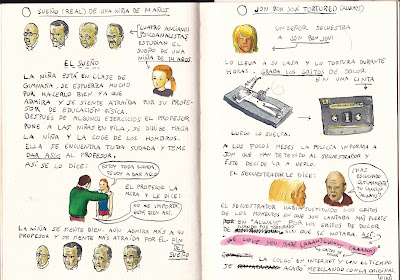 SUEÑO (REAL) DE UNA NIÑA DE 14 AÑOS
CUATRO ANCIANOS
PSICOANALISTAS
ESTUDIAN EL
SUEÑO DE UNA
NIÑA DE 14 AÑOS.
EL SUEÑO
LA NIÑA ESTÁ EN CLASE DE
GIMNASIA, SE ESFUERZA MUCHO
POR HACERLO BIEN YA QUE
ADMIRA Y SE SIENTE ATRAÍDA POR SU PROFE-
SOR DE EDUCACIÓN FÍSICA.
DESPUÉS DE ALGUNOS EJERCICIOS EL PROFESOR
PONE A LAS NIÑAS EN FILA, SE DIRIGE HACIA
LA NIÑA Y LA COGE DE LOS HOMBROS.
ELLA SE ENCUENTRA TODA SUDADA Y TEME
DAR ASCO AL PROFESOR.
ASÍ SE LO DICE:
ESTOY TODA SUDADA,
TE VOY A DAR ASCO
EL PROFESOR LA
MIRA Y LE DICE:
NO ME IMPORTA,
ESTÁ BIEN ASÍ.
LA NIÑA SE SIENTE BIEN. AÚN ADMIRA MÁS A SU
PROFESOR Y SE SIENTE MÁS ATRAÍDA POR ÉL. FIN
DEL SUEÑO
JON BON JOVI TORTURED (ALWAYS)
UN SEÑOR SECUESTRA
A JON BON JOVI
LO LLEVA A SU CASA Y LO TORTURA DURANTE
HORAS. GRABA LOS GRITOS DE DOLOR
EN UNA CINTA
LUEGO LO SUELTA.
A LOS POCOS MESES LA POLICÍA INFORMA A
JON QUE HAN DETENIDO AL SECUESTRADOR Y
ESTE DECIDE IR A VERLO.
EL SECUESTRADOR LE DICE:
HAS
SEGUIDO
ESCUCHANDO
TU CANCIÓN
"ALWAYS"?
EL SECUESTRADOR HABÍA SUSTITUIDO LOS GRITOS
DE LOS MOMENTOS EN QUE JON CANTABA MÁS FUERTE
EN "ALWAYS" POR LOS GRITOS DE DOLOR
CUANDO FUE TORTURADO
SIN QUE SE NOTARA. ASÍ:
"I'LL LOVE YOU, BABE (AAAH) ALWAYS (AAAAH)
GRITOS DE DOLOR
LA COLGÓ EN INTERNET Y CON EL TIEMPO
SE ACABÓ MEZCLANDO CON LA ORIGINAL